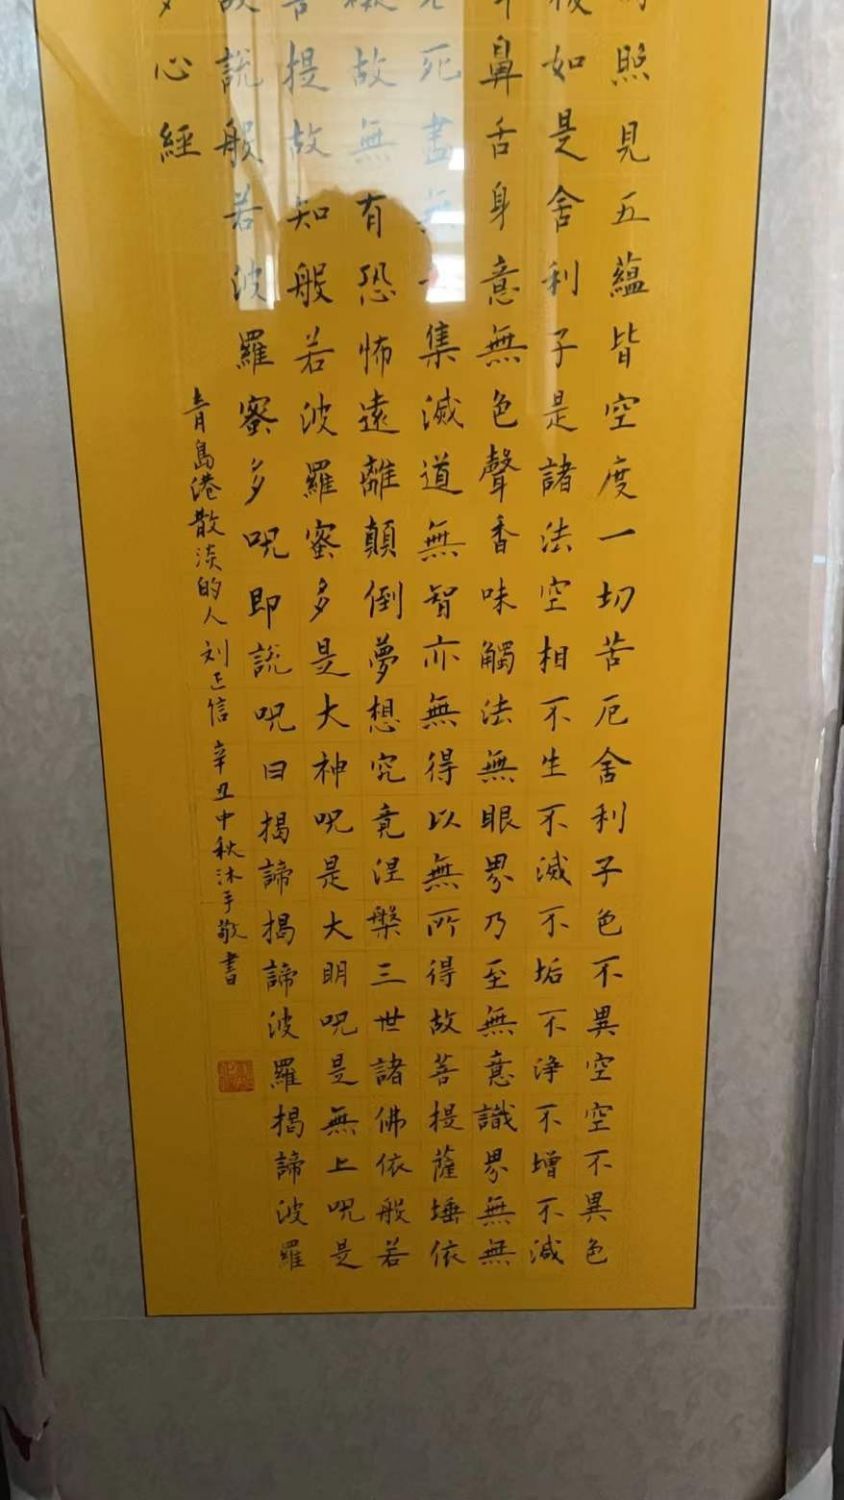 照見五蘊皆空度一切苦厄舍利子色不異空空不異色
如是舍利子是諸法空相不生不滅不垢不淨不增不減
鼻舌身意無色聲香味觸法無眼界乃至無意識界無無
死盡無集滅道無智亦無得以無所得故菩提薩埵依
礙故無有恐怖遠離顛倒夢想究竟涅槃三世諸佛依般若
菩提故知般若波羅蜜多是大神呪是大明呪是無上呪是
故說般若波羅蜜多呪即說呪曰揭諦揭諦波羅揭諦波羅
多心經
青島港散淡的人刘正信辛丑中秋沐手敬書